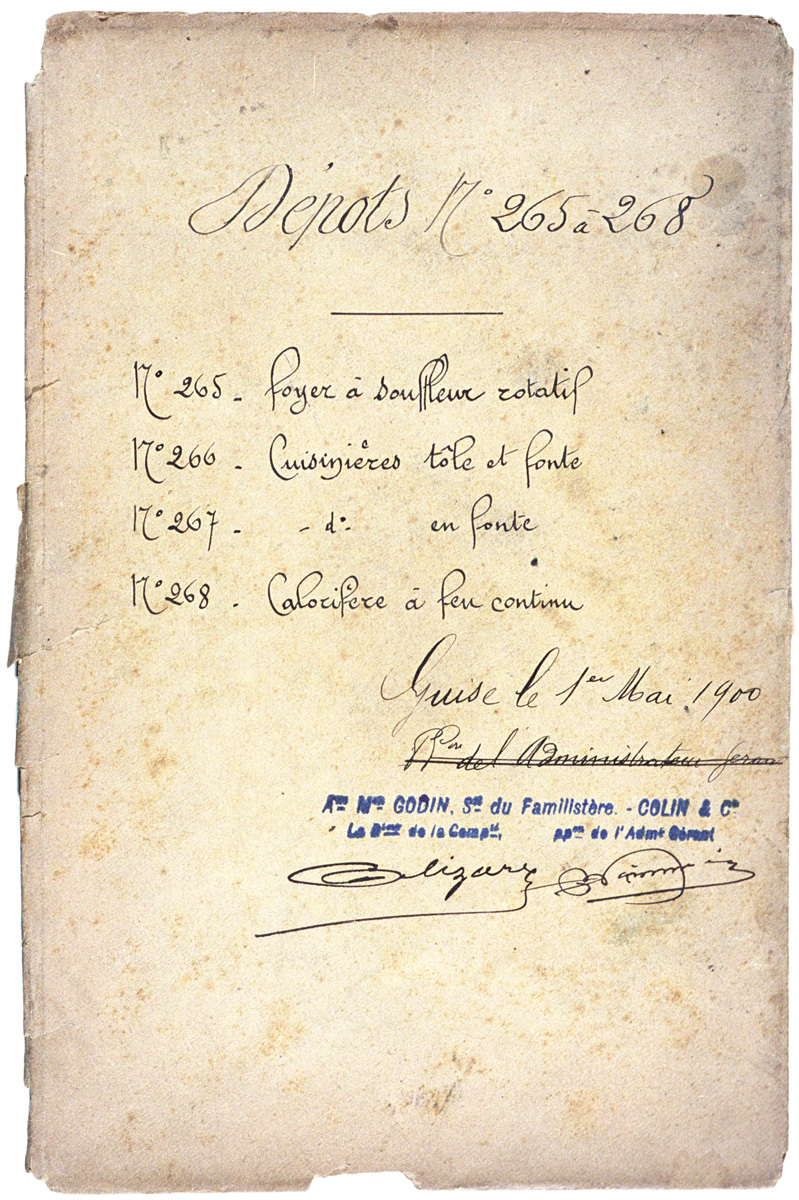 Dépots N° 265 à 268
N° 265 - foyer à souffleur rotatif
N° 266 - Cuisinières tôle et fonte
N° 267 - - d° - en fonte
N° 268 - Calorifère à feu continu
Guise le 1er Mai 1900
Pon de l'Administrateur Gérant
Anne Mon GODIN, Sté du Familistère. - COLIN & Cie
Le Dteur de la Compté, ppon de l'Admr Gérant